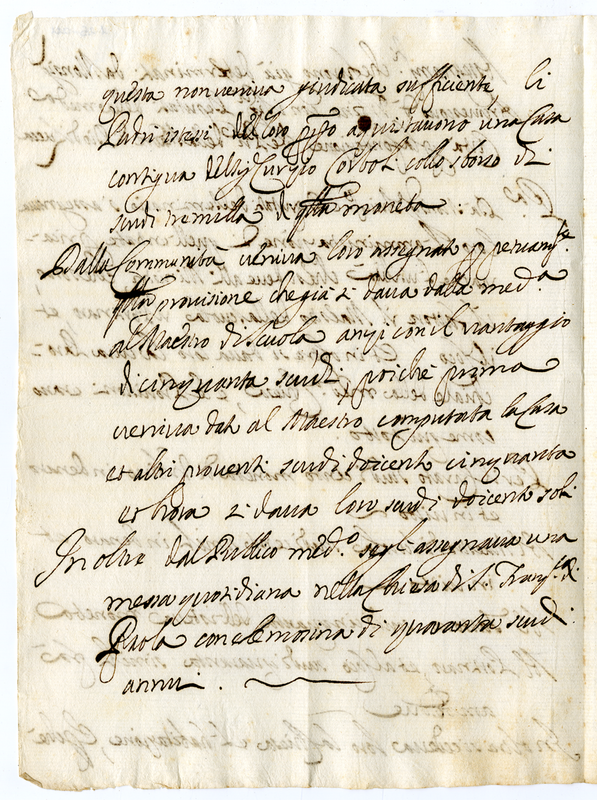 questa non veniva giudicata sufficiente, li
Padri istessi del loro pprio acquistavono una Casa
contigua del Sig. Curzio Corboli collo sborso di
scudi tremilla di qsta moneta.
Dalla Communità veniva loro assegnat p
qlla provisione che già si dava dalla med.a
al Maestro di Scuola anzi con il vantaggio
di cinquanta scudi poiche prima
veniva dat al Maestro computata la Casa
et altri proventi scudi doicento cinquanta
et hora si dava loro scudi doicento soli
In oltre dal Publico med.o segl'assegnava una
messa quotidiana nella Chiesa di S. Fran.co di
Paola con elemosina di quaranta scudi
annui.